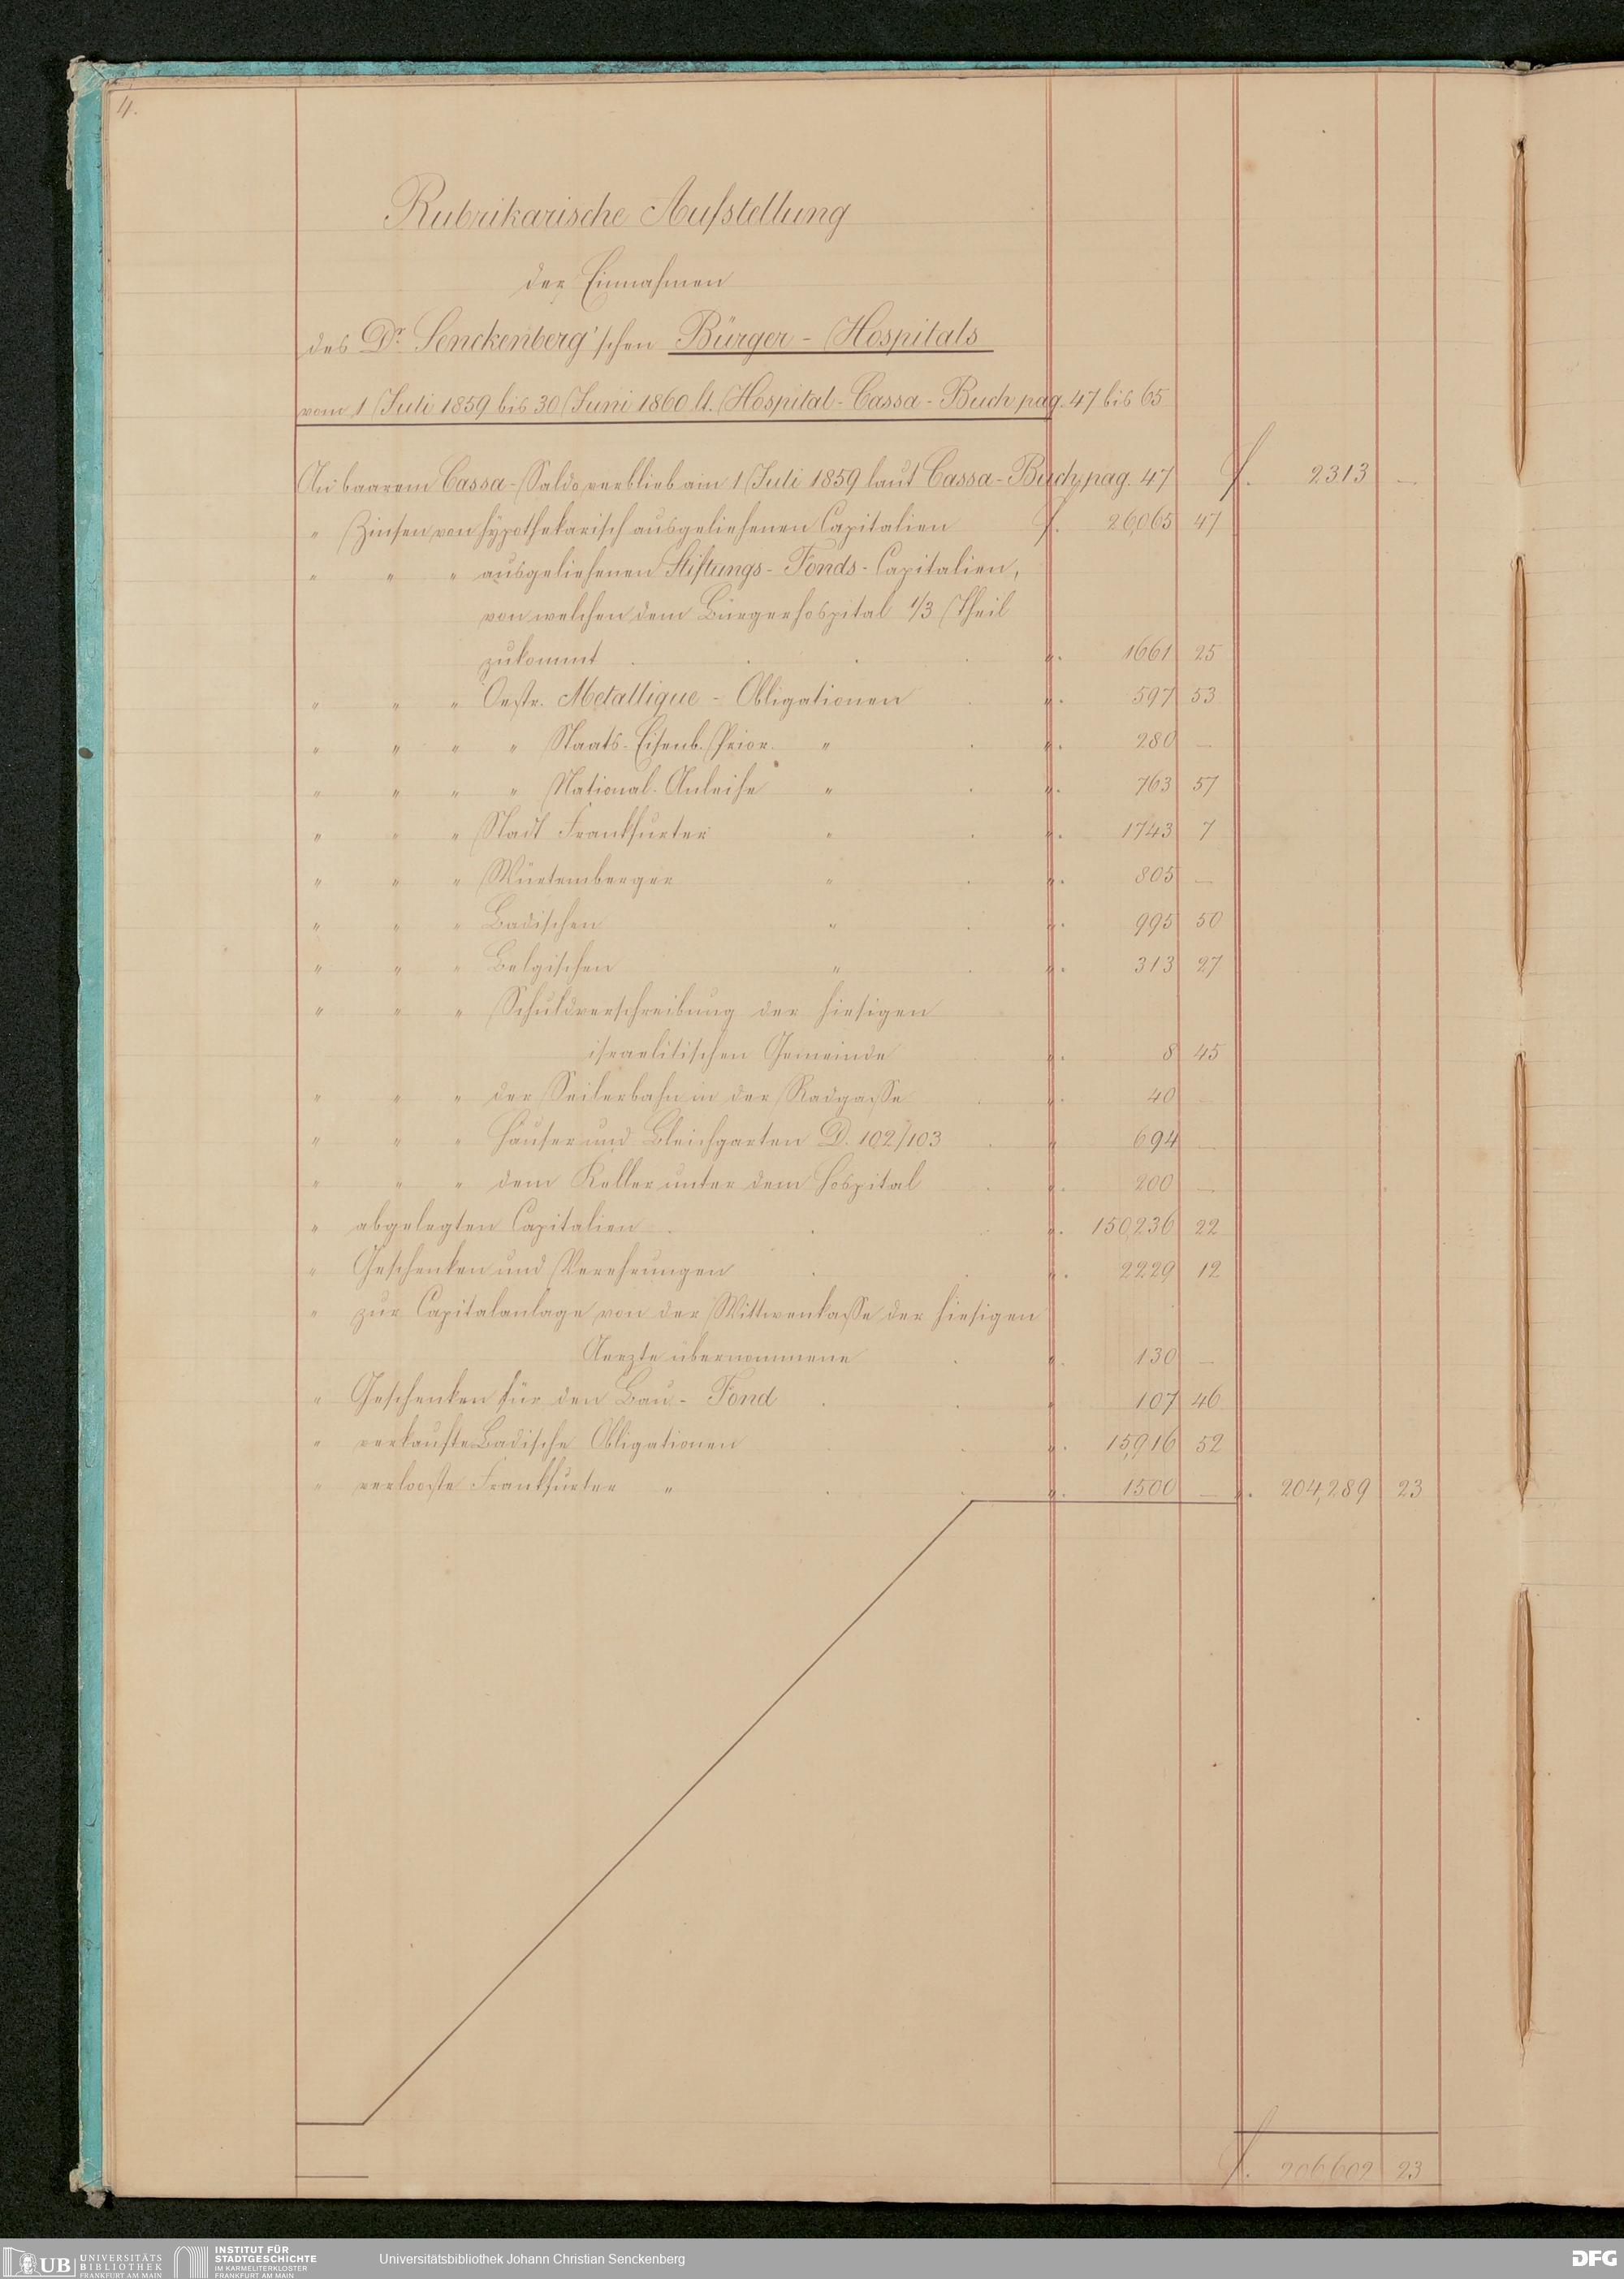 4.
Rubrikarische Aufstellung
der Einnahmen
des Dr. Senckenberg'schen Bürger-Hospitals
vom 1 Juli 1859 bis 30 Juni 1860 lt. Hospital-Cassa-Buch pag. 47 bis 65
An baarem Cassa-Saldo verblieb am 1 Juli 1859 laut Cassa-Buch pag. 47 f. 2313 —
" Zinsen von hypothekarisch ausgeliehenen Capitalien f. 26,065 47
" " " ausgeliehenen Stiftungs-Fonds-Capitalien,
von welchen dem Bürgerhospital 1/3 Theil
zukommt . . . . ". 1661 25
" " " Oestr. Metallique-Obligationen . ". 597 53
" " " " Staats-Eisenb. Prior. " . ". 280 —
" " " " National-Anleihe " . ". 763 57
" " " Stadt Frankfurter " . ". 1743 7
" " " Würtemberger " . ". 805 —
" " " Badischen " . ". 995 50
" " " Belgischen " . ". 313 27
" " " Schuldverschreibung der hiesigen
israelitischen Gemeinde ". 8 45
" " " der Seilerbahn in der Radgasse . ". 40
" " " Häuser und Bleichgarten D. 102/103 . " 694 —
" " " dem Keller unter dem Hospital . ". 200 —
" abgelegten Capitalien . . . ". 150,236 22
" Geschenken und Verehrungen . . ". 2229 12
" zur Capitalanlage von der Wittwenkasse der hiesigen
Aerzte übernommene . ". 130 —
" Geschenken für den Bau-Fond . . " 107 46
" verkaufte Badische Obligationen . . ". 15,916 52
" verlooste Frankfurter " . . ". 1500 — ". 204,289 23
f. 206,602 23
UB UNIVERSITÄTS
BIBLIOTHEK
FRANKFURT AM MAIN
INSTITUT FÜR
STADTGESCHICHTE
IM KARMELITERKLOSTER
FRANKFURT AM MAIN
Universitätsbibliothek Johann Christian Senckenberg
DFG